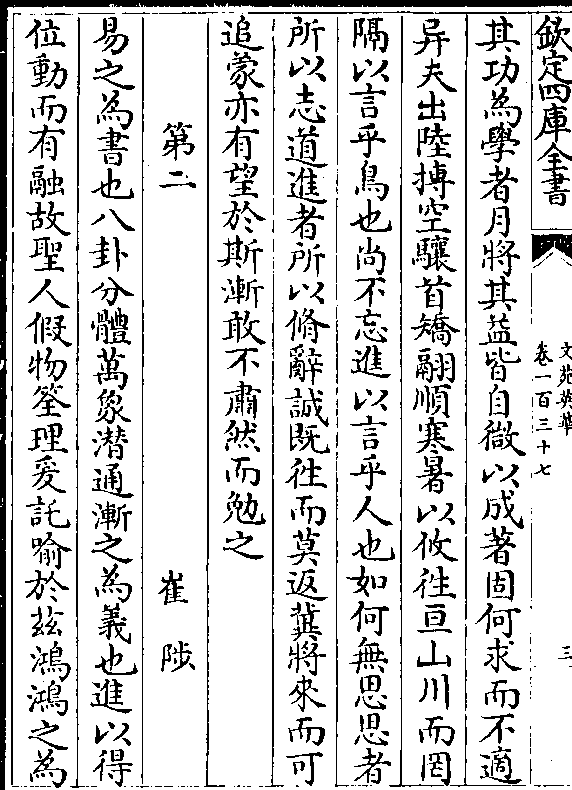 欽定四庫全書
文苑英華
卷一百三十七
三
其功為學者月將其益皆自微以成著固何求而不適
异夫出陸摶空驤首矯翮順寒暑以攸徃亘山川而罔
隔以言乎鳥也尚不忘進以言乎人也如何無思思者
所以志道進者所以脩辭誠既徃而莫返冀將來而可
追蒙亦有望於斯漸敢不肅然而勉之
第二
崔陟
易之為書也八卦分體萬象潜通漸之為義也進以得
位動而有融故聖人假物筌理爰託喻於兹鴻鴻之為